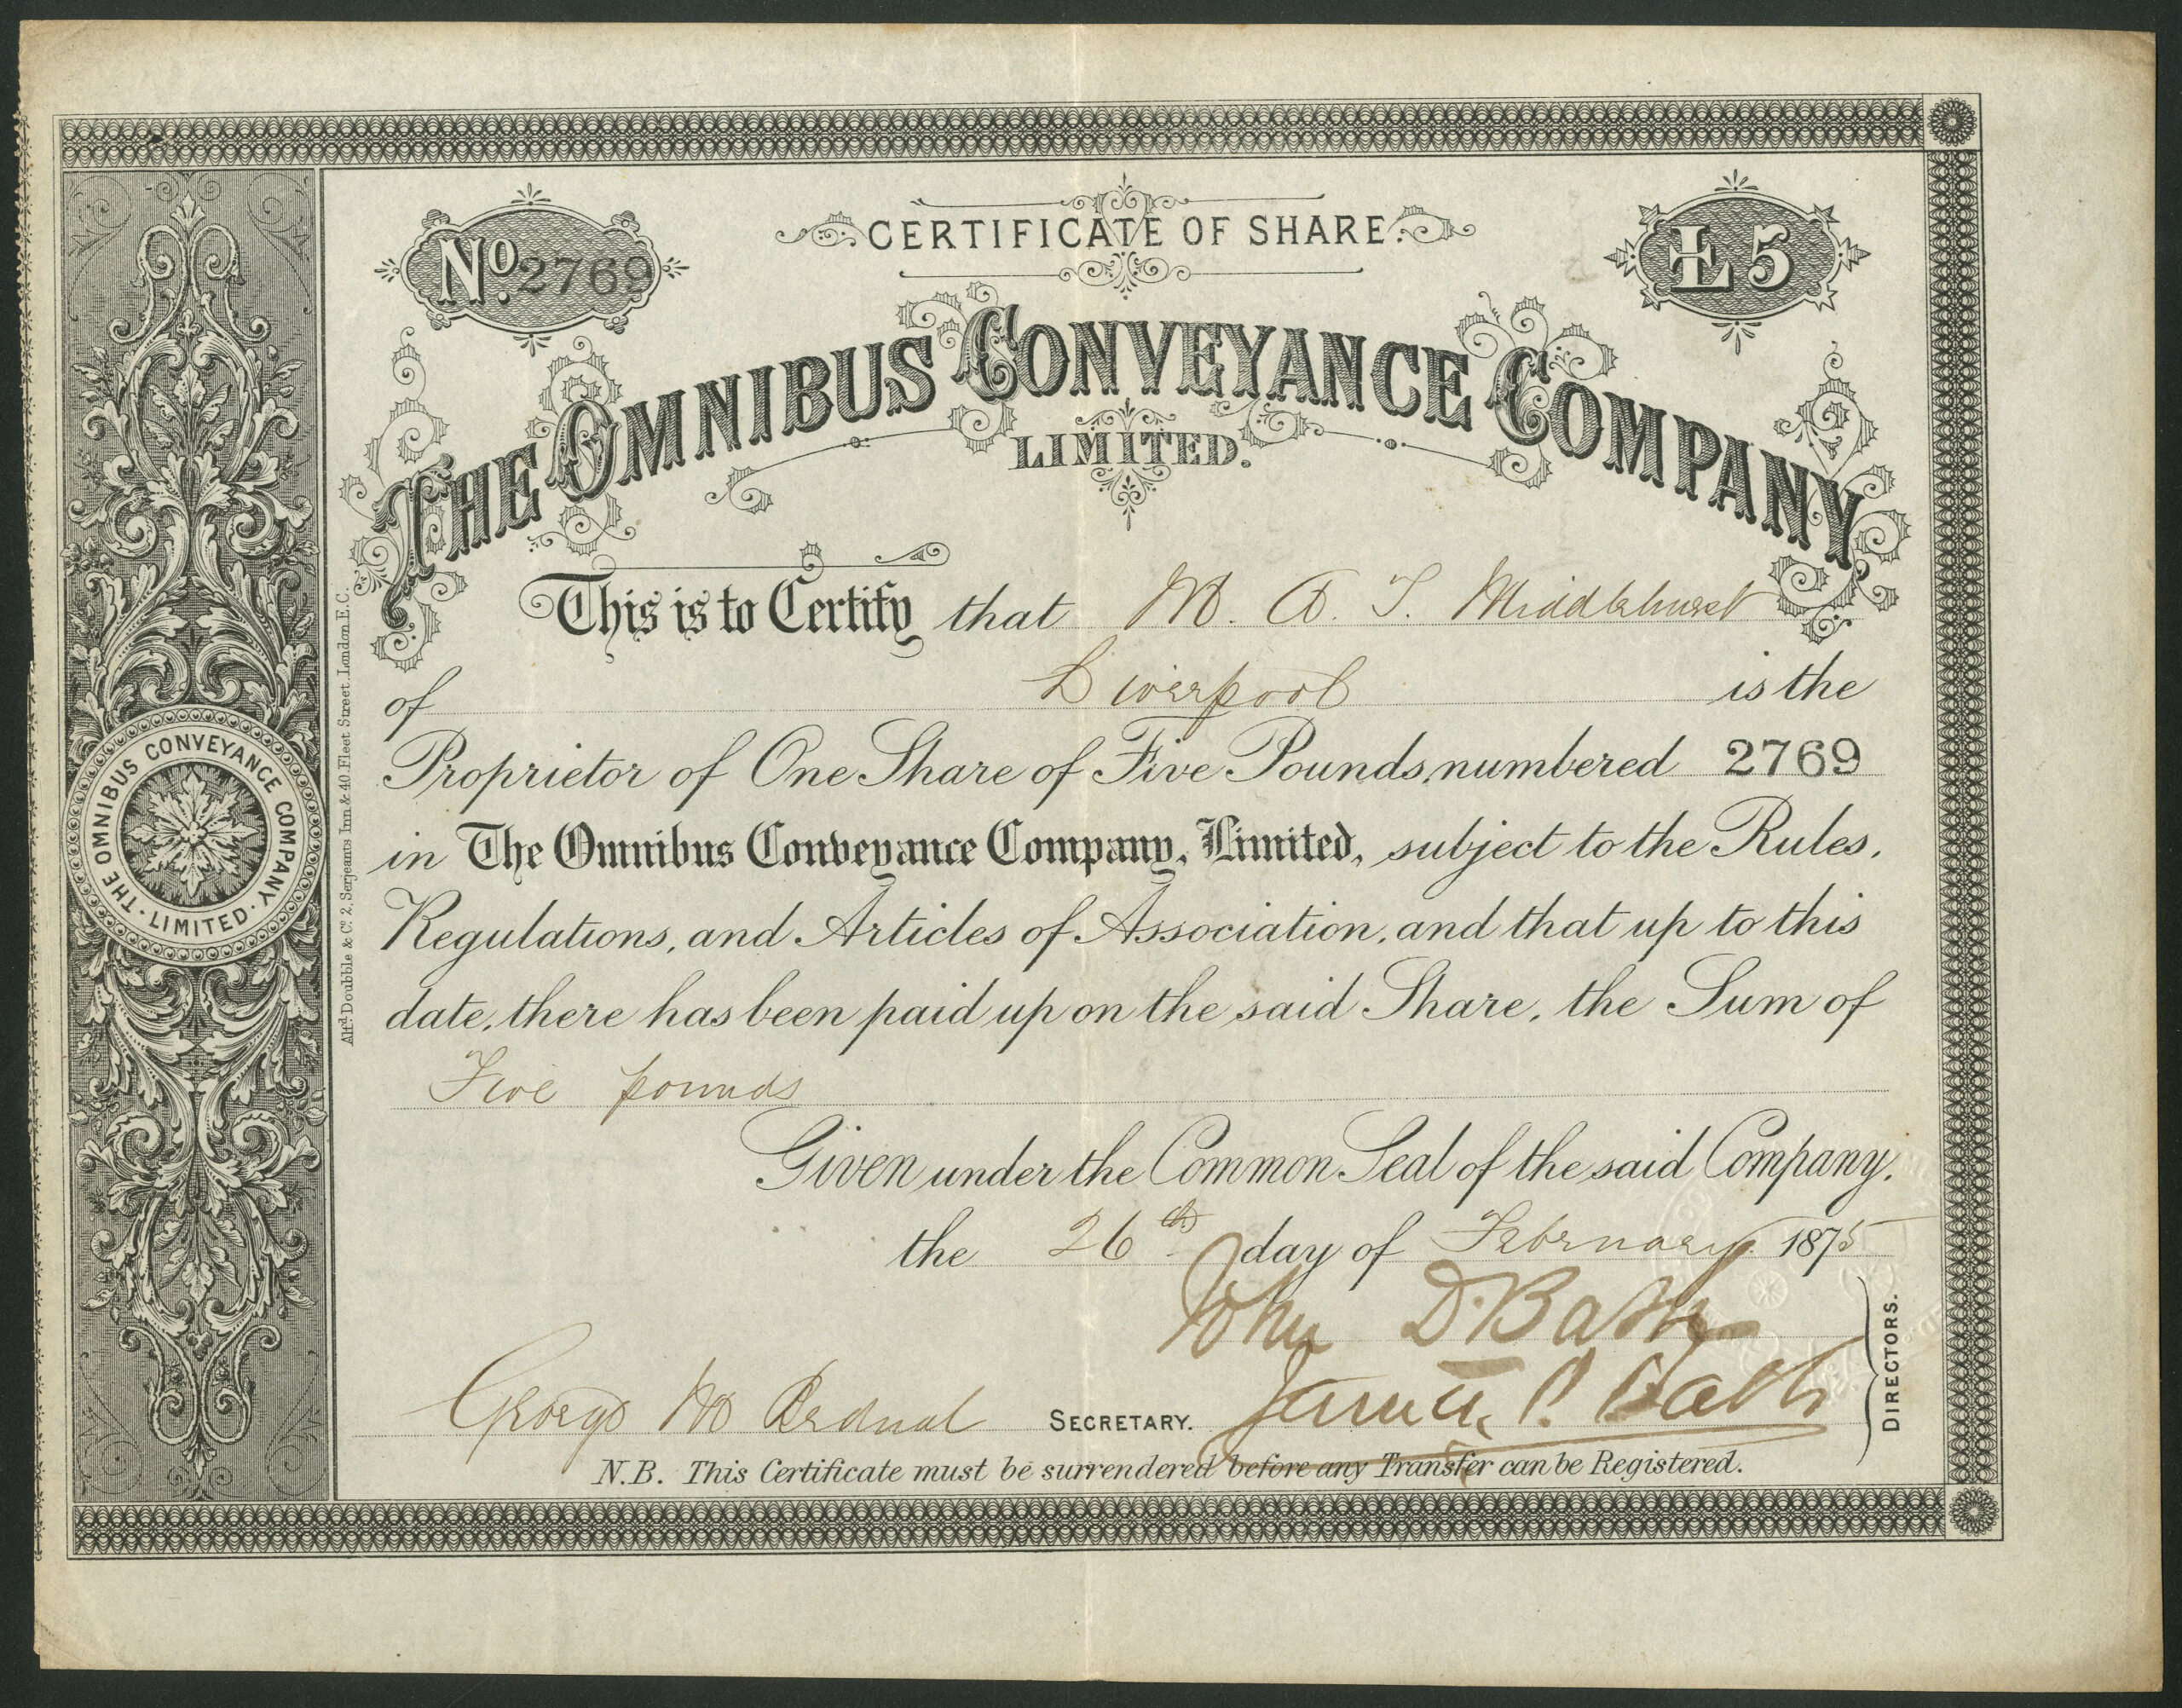 CERTIFICATE OF SHARE.
No. 2769
£5
THE OMNIBUS CONVEYANCE COMPANY
LIMITED.
This is to Certify that M. A. T. Middlehurst
of Liverpool is the
Proprietor of One Share of Five Pounds, numbered 2769
in The Omnibus Conveyance Company, Limited, subject to the Rules,
Regulations, and Articles of Association, and that up to this
date, there has been paid up on the said Share, the Sum of
Five pounds
Given under the Common Seal of the said Company,
the 26th day of February 1875
John D. Bath
James P. Bath
DIRECTORS.
George SECRETARY.
N.B. This Certificate must be surrendered before any Transfer can be Registered.
THE OMNIBUS CONVEYANCE COMPANY · LIMITED ·
Alfd Doubble & Co. 2, Serjeants Inn & 40, Fleet Street, London, E.C.